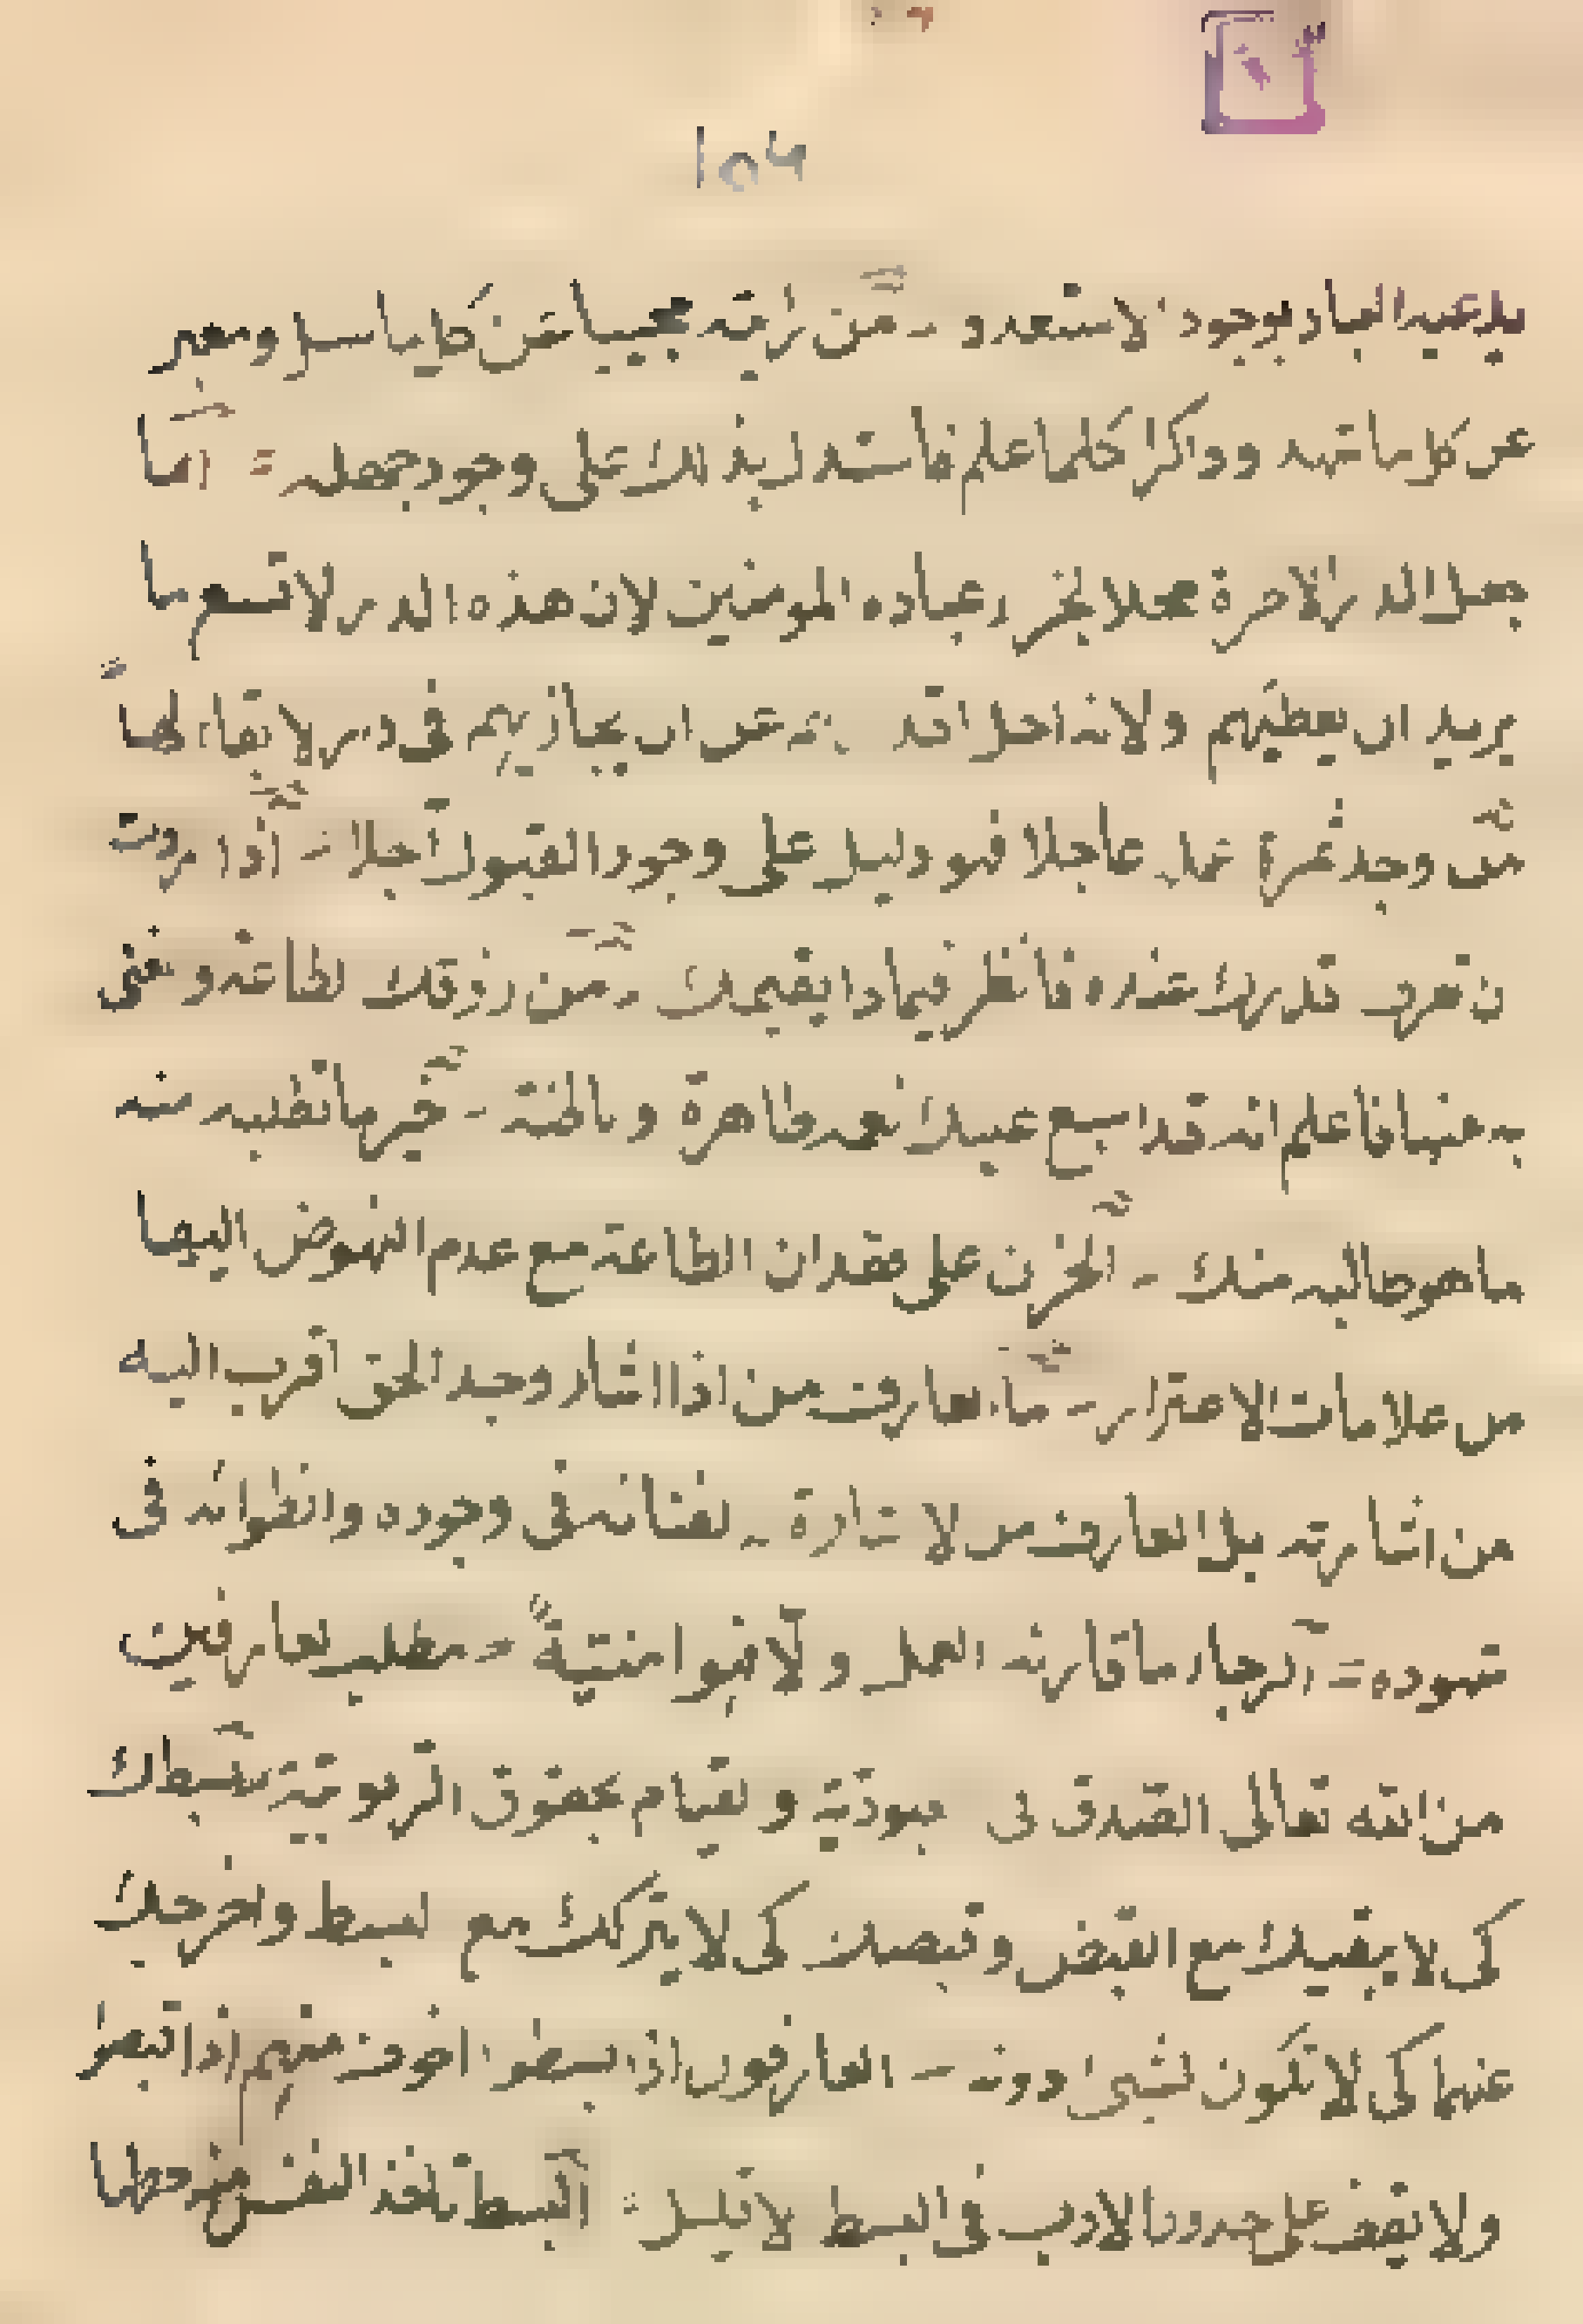 ١٥٦
يد عليه العباد بوجود الاستعداد من رايته مجيبا عن كل ما سئل ومعبر
عن كل ما شهد وذاكرا كلما علم فاستدل بذلك على وجود جهله انما
جعل الدار الاخرة محلا لجزاء عباده المومنين لان هذه الدار لا تسع ما
يريد ان يعطيهم ولانه اجل اقدارهم عن ان يجازيهم في دار لا بقاء لها
من وجد ثمرة عمله عاجلا فهو دليل على وجود القبول اجلا اذا اردت
ان تعرف قدرك عنده فانظر فيما ذا يقيمك من رزقك الطاعة والغنى
به عنها فاعلم انه قد اسبع عليك نعمه ظاهرة وباطنة خير ما تطلبه منه
ما هو طالبه منك الحزن على فقدان الطاعة مع عدم النهوض اليها
من علامات الاغترار ما العارف من اذا اشار وجد الحق اقرب اليه
من اشارته بل العارف من لا اشارة له لفنائه في وجوده وانطوائه في
شهوده الرجاء ما قارنه العمل والا فهو امنية مطلب العارفين
من الله تعالى الصدق في العبودية والقيام بحقوق الربوبية بسطك
كي لا يبقيك مع القبض وقبضك كي لا يتركك مع البسط واخرجك
عنهما كي لا تكون لشيئ دونه العارفون اذا بسطوا اخوف منهم اذا قبضوا
ولا يقف على حدود الادب في البسط الا قليل البسط تاخذ النفس منه حظها